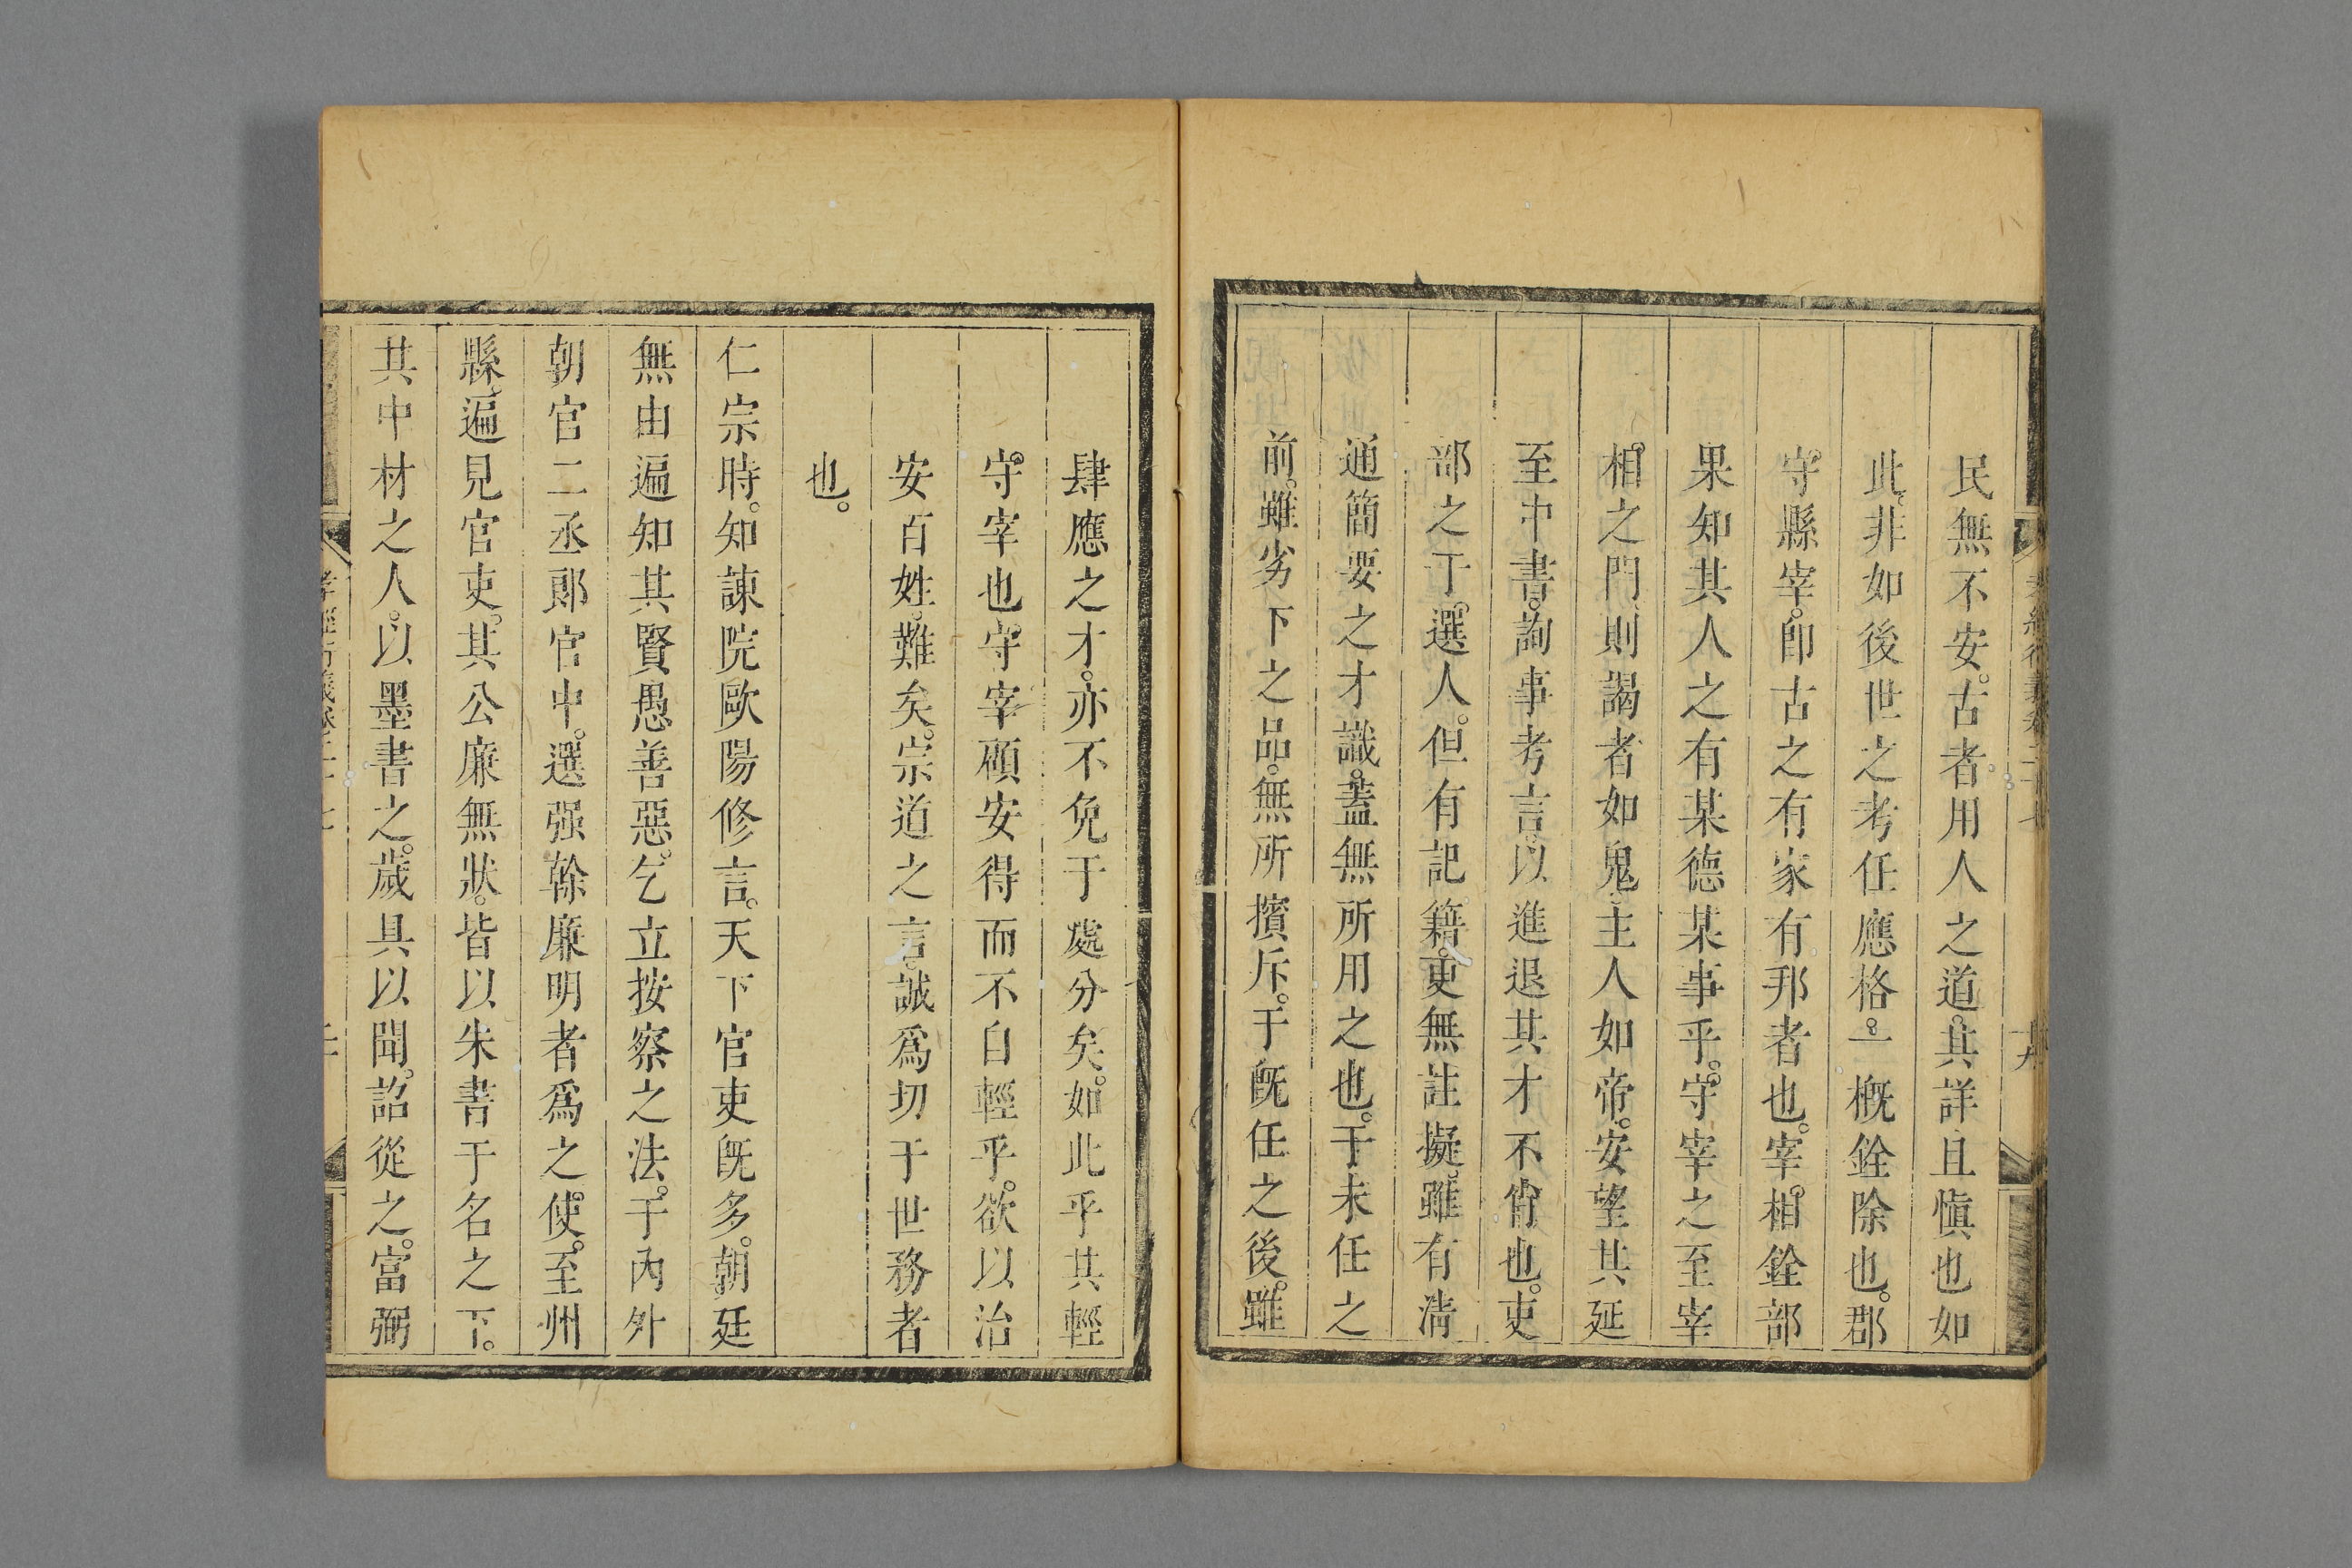 民無不安。古者。用人之道。其詳且愼也如
此。非如後世之考任應格。一槪銓除也。郡
守。縣宰。卽古之有家有邦者也。宰。相銓部
果知其人之有某德某事乎。守。宰之至宰
相。之門。則謁者如鬼。主人如帝。安望其延
至中書。詢事考言。以進退其才不肖也。吏
部之于。選人。但有記籍。更無註擬。雖有淸
通簡要之才識。蓋無所用之也。于未任之
前。雖劣下之品。無所擯斥。于旣任之後。雖
孝經衍義卷二十七
十九
肆應之才。亦不免于處分矣。如此乎其輕
守。宰也。守。宰顧安得而不自輕乎。欲以治
安百姓。難矣。宗道之言。誠爲切于世務者
也。
仁宗時。知諫院歐陽修言。天下官吏旣多。朝廷
無由遍知其賢愚善惡。乞立按察之法。于內外
朝官二丞郞官中。選强幹廉明者爲之。使。至州
縣。遍見官吏。其公廉無狀。皆以朱書于名之下。
其中材之人。以墨書之。歲具以聞。詔從之。富弼
孝經衍義卷二十七